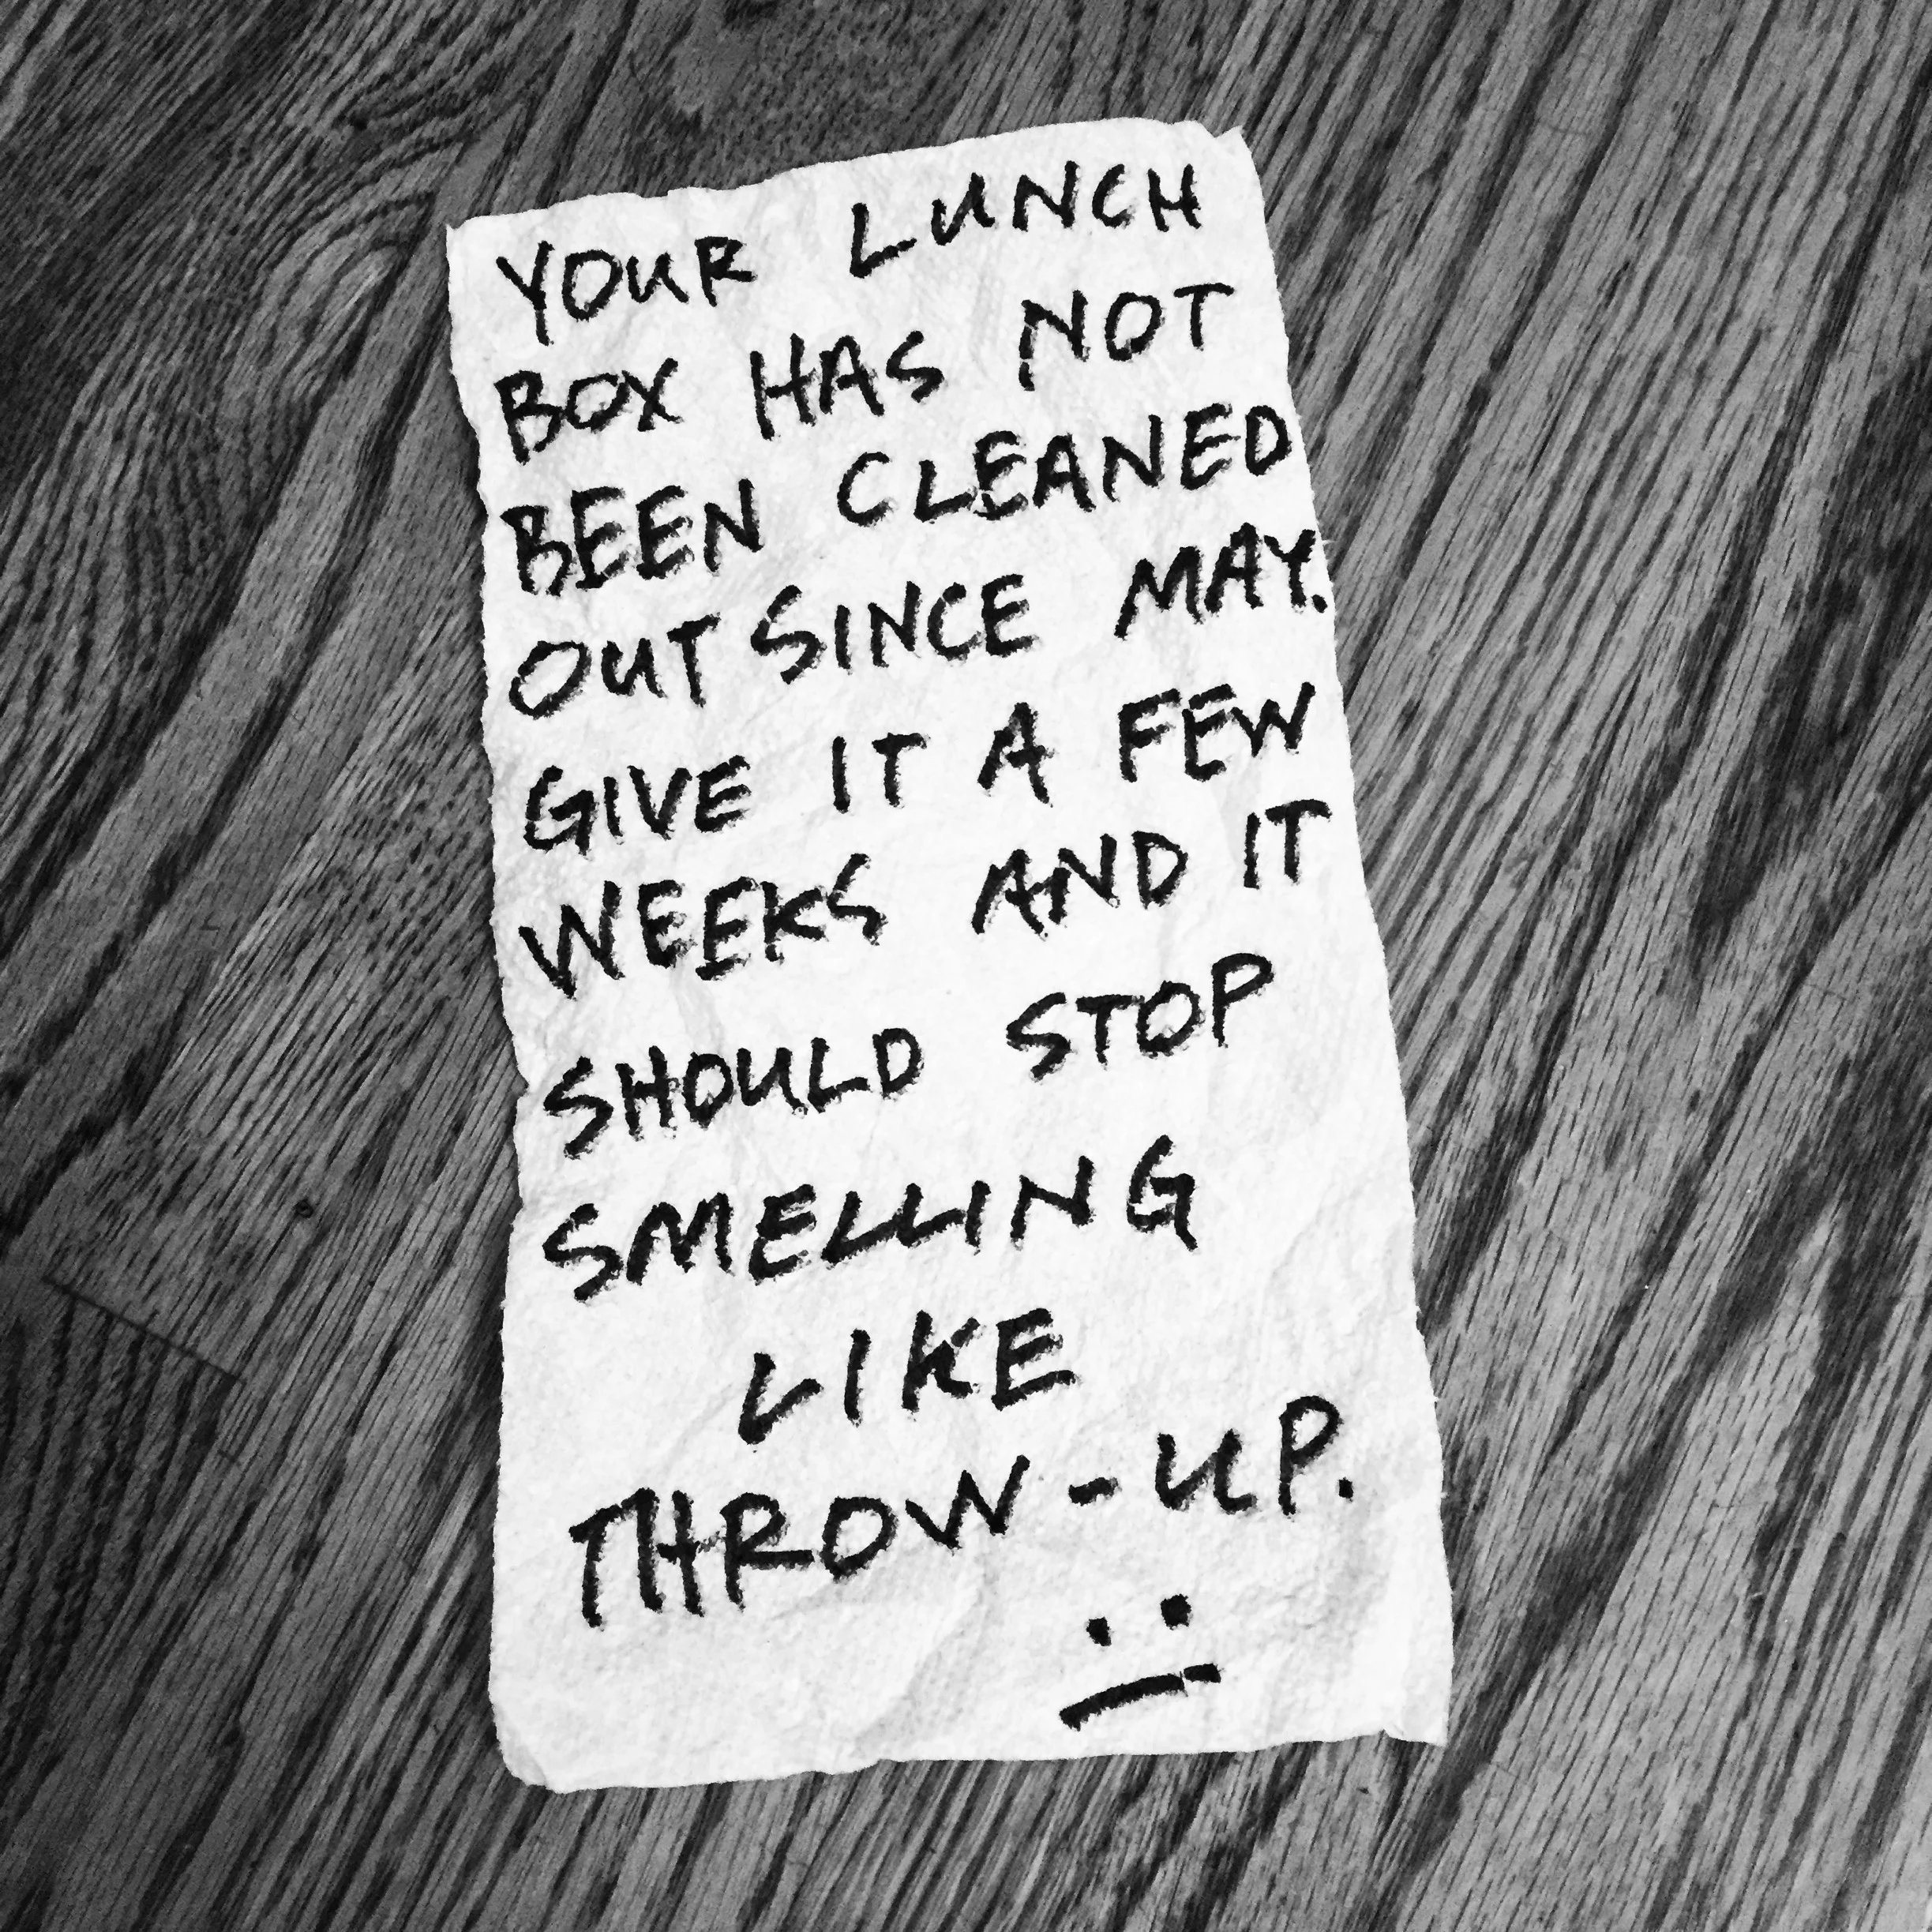 YOUR LUNCH
BOX HAS NOT
BEEN CLEANED
OUT SINCE MAY.
GIVE IT A FEW
WEEKS AND IT
SHOULD STOP
SMELLING
LIKE
THROW-UP.